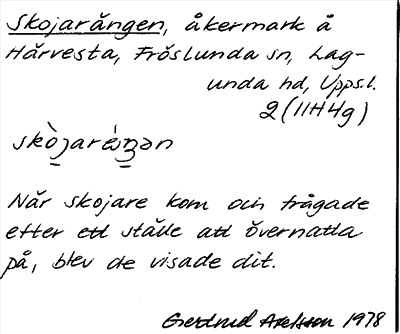 Skojarängen, åkermark å
Härvesta, Fröslunda sn, Lag-
unda hd, Upps.l.
2(11H4g)
När skojare kom och frågade
efter ett ställe att övernatta
på, blev de visade dit.
Gertrud Axelsson 1978